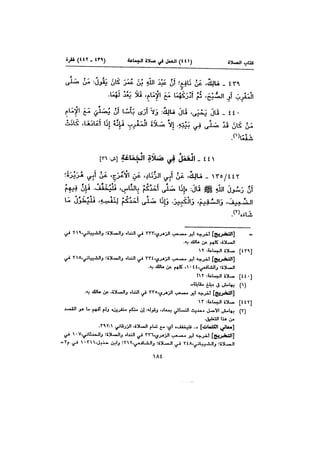 كتاب الصلاة (٤٤١) العمل في صلاة الجماعة (٤٣٩ - ٤٤٢) فقرة
٤٣٩ - مَالِكٌ، عَنْ نَافِعٍ؛ أَنَّ عَبْدَ اللهِ بْنَ عُمَرَ كَانَ يَقُولُ: مَنْ صَلَّى
الْمَغْرِبَ أَوِ الصُّبْحَ، ثُمَّ أَدْرَكَهُمَا مَعَ الْإِمَامِ، فَلَا يَعُدْ لَهُمَا.
٤٤٠ - قَالَ يَحْيَى، قَالَ مَالِكٌ: وَلَا أَرَى بَأْساً أَنْ يُصَلِّيَ مَعَ الْإِمَامِ
مَنْ كَانَ قَدْ صَلَّى فِي بَيْتِهِ. إِلَّا صَلَاةَ الْمَغْرِبِ فَإِنَّهُ إِذَا أَعَادَهَا، كَانَتْ
شَفْعًا(١).
٤٤١ - الْعَمَلُ فِي صَلَاةِ الْجَمَاعَةِ [ص ٣٦]
٤٤٢/ ١٣٥ - مَالِكٌ، عَنْ أَبِي الزِّنَادِ، عَنِ الْأَعْرَجِ، عَنْ أَبِي هُرَيْرَةَ؛
أَنَّ رَسُولَ اللهِ ﷺ قَالَ: «إِذَا صَلَّى أَحَدُكُمْ بِالنَّاسِ، فَلْيُخَفِّفْ، فَإِنَّ فِيهِمُ
الضَّعِيفَ، وَالسَّقِيمَ، وَالْكَبِيرَ. وَإِذَا صَلَّى أَحَدُكُمْ لِنَفْسِهِ، فَلْيُطَوِّلْ مَا
شَاءَ»(٢).
= [التخريج] أخرجه أبو مصعب الزهري، ٣٣٣ في النداء والصلاة؛ والشيباني، ٢١٩ في
الصلاة، كلهم عن مالك به.
[٤٣٩] صلاة الجماعة: ١٢
[التخريج] أخرجه أبو مصعب الزهري، ٣٣٤ في النداء والصلاة؛ والشيباني، ٢١٨ في
الصلاة؛ والشافعي، ١٠٤٤، كلهم عن مالك به.
[٤٤٠] صلاة الجماعة: ١٢أ
(١) بهامش ق
[التخريج] أخرجه أبو مصعب الزهري، ٣٣٥ في النداء والصلاة، عن مالك به.
[٤٤٢] صلاة الجماعة: ١٣
(٢) بهامش الأصل وقوله: إن منكم منفرين، ولم
من هذا التعليق.
[معاني الكلمات] «.. فليخفف» أي: مع تمام الصلاة، الزرقاني ١: ٣٩٢
[التخريج] أخرجه أبو مصعب الزهري، ٣٣٦ في النداء والصلاة؛ والحدثاني، ١٠٧ في
الصلاة؛ والشيباني، ٢٤٨ في الصلاة؛ والشافعي، ٢١٢؛ وابن حنبل، ١٠٣١١ في م٢ =
١٨٤